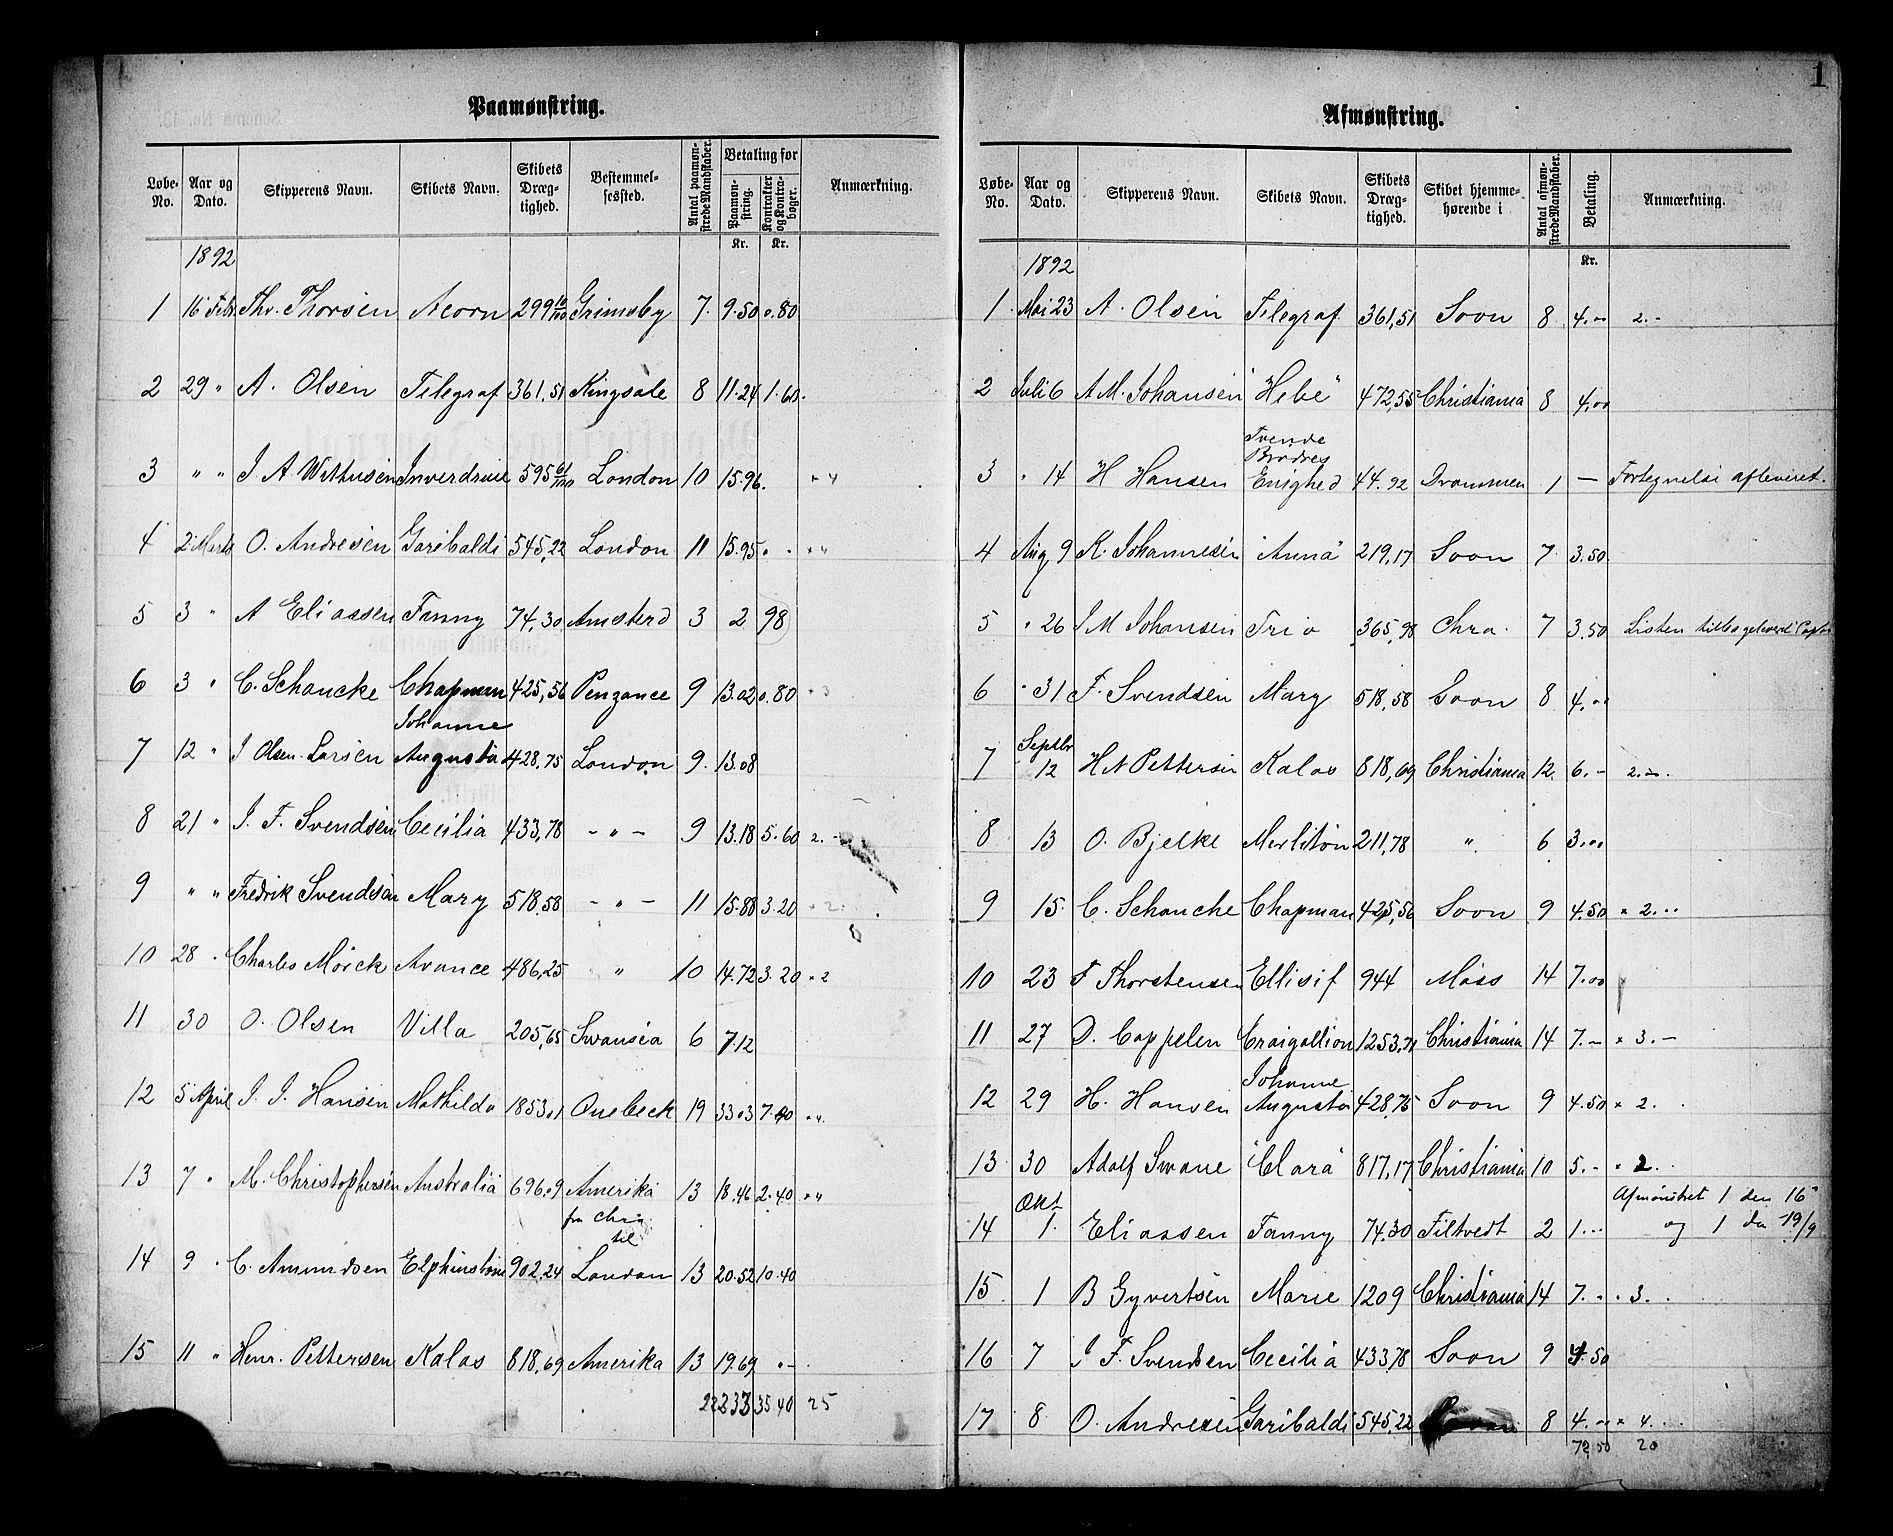 1
Paamønstring.
Løbe-No. Aar og Dato. Skipperens Navn. Skibets Navn. Skibets Dræg-tighed. Bestemmel-sessted. Antal paamøn-strede Mandskaber. Betaling for Paamøn-string. Kr. Kontrakter og Kontra-bøger. Kr. Anmærkning.
1892
1 16 Febr. Thv. Thorsen Acorn 299 10/100 Grimsby 7. 9.50 0.80
2 29 " A. Olsen Telegraf 361,51 Kingsale 8 11.24 1.60.
3 " " J. A. Withusen Inverdruie 595 61/100 London 10 15.96. " 4
4 2 Marts O. Andresen Garibaldi 545,22 London 11 15.95 " . " 4
5 3 " A Eliassen Fanny 74,30 Amsterd 3 2 98
6 3 " C. Schancke Chapman 425,56 Penzance 9 13.02 0.80 " 3
Johanne
7 12 " J Olsen-Larsen Augusta 428,75 London 9. 13.08
8 21 " J. F. Svendsen Cecilia 433,78 - " - 9 13.18 5.60 2. -
9 " " Fredrik Svendsen Mary 518,58 - " - 11 15.88 3.20 " 2.
10 28 " Charles Mörck Avance 486,25 " 10 14.72 3.20 " 2
11 30 O. Olsen Villa 205,65 Swansea 6 7.12
12 5 April J. J. Hansen Mathilda 1853.01 Quebeck 19 33.03 7.40 " 4.
13 7 " M. Christophersen Australia 696.09 Amerika 13 18.46 2.40 " 4
fra Chria.
til
14 9 " C. Amundsen Elphinstone 902,24 London 13 20.52 10.40
15 11 " Henr. Pettersen Kalas 818,69 Amerika 13 19.69 " -
35 40 25
Afmønstring.
Løbe-No. Aar og Dato. Skipperens Navn. Skibets Navn. Skibets Dræg-tighed. Skibet hjemme-hørende i Antal afmøn-strede Mandskaber. Betaling. Kr. Anmærkning.
1892
1 Mai 23 A. Olsen Telegraf 361,51 Soon 8 4.00 2.-
2 Juli 6 A M. Johansen "Hebe" 472,55 Christiania 8 4,00
Tvende
Brødres
3 " 14 H Hansen Enighed 44.92 Drammen 1 — Fortegnelse afleveret.
4 Aug 9 K. Johannesen "Anna" 219,17 Soon 7 3.50
5 " 26 J M Johansen Trio 365,98 Chra. 7 3.50 Listen tilbageleveret Capt
6 " 31 F. Svendsen Mary 518,58 Soon 8 4.00
Septbr
7 12 H A Pettersen Kalas 818,69 Christiania 12. 6.- 2.-.
8 13 O. Bjelke Merliton 211,78 " 6 3.00
9 15 C. Schancke Chapman 425,56 Soon 9 4.50 " 2...
10 23 F Thorstensen Ellisif 944 Moss 14 7.00
11 27 D. Cappelen Craigallion 1253,71 Christiania 14 7.- " 3.-
Johanne
12 29 H. Hansen Augusta 428,75 Soon 9 4.50 " 2.
13 30 Adolf Swane "Clara" 817,17 Christiania 10 5.- " 2.
Okt Afmønstret 1 den 16"
14 1. Eliassen Fanny 74.30 Filtvedt 2 1... og 1 den 19/9
15 1 B Gyvertsen Marie 1209 Christiania 14 7. - . 3..
16 7 J F. Svendsen Cecilia 433,78 Soon 9 4.50
17 8 O. Andresen Garibaldi 545,22 8 4.00 " 4...
72,50 20